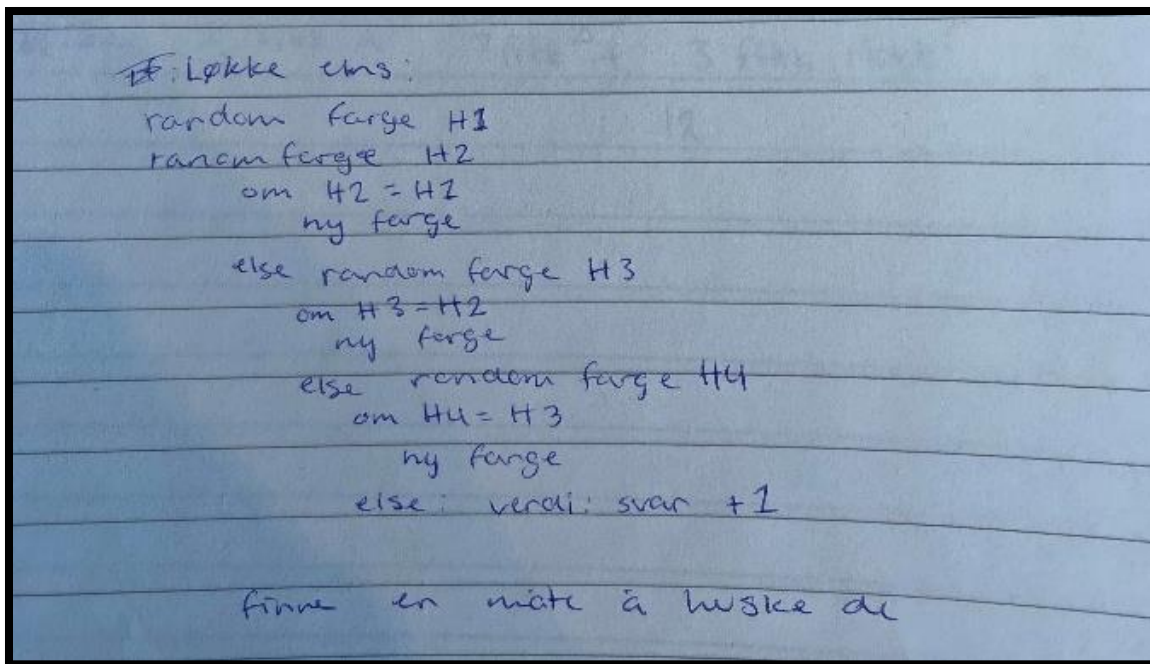 Løkke ems:
random farge H1
ranom farge H2
om H2 = H1
ny farge
else random farge H3
om H3 = H2
ny farge
else random farge H4
om H4 = H3
ny farge
else: verdi: svar +1
finne en måte å huske de